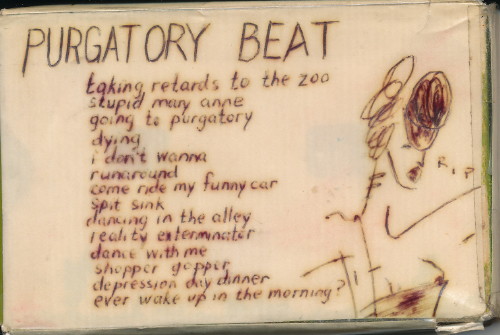 PURGATORY BEAT
taking retards to the zoo
stupid mary anne
going to purgatory
dying
i don't wanna
runaround
come ride my funny car
spit sink
dancing in the alley
reality exterminator
dance with me
shopper gopper
depression day dinner
ever wake up in the morning?
R.I.P